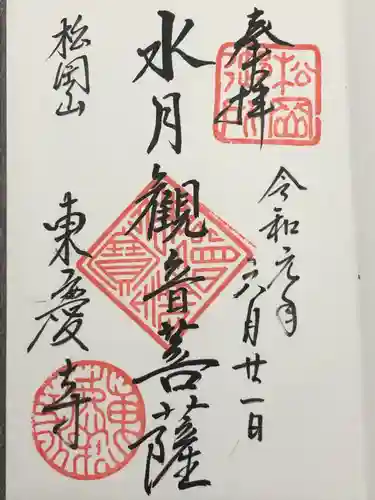 奉拝
令和元年
六月廿一日
水月觀音菩薩
松岡山
東慶寺